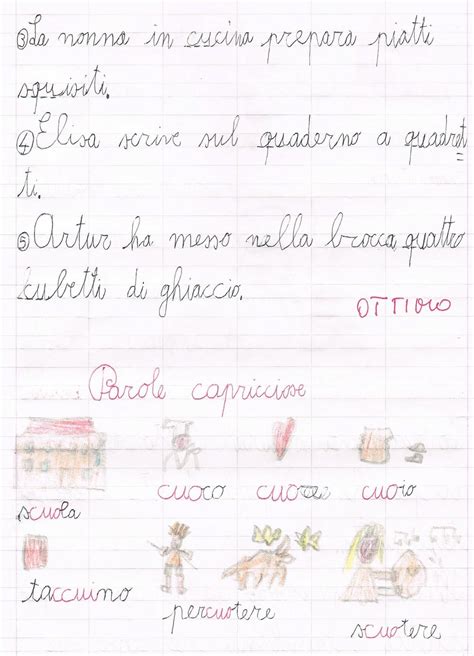 ③La nonna in cucina prepara piatti
squisiti.
④Elisa scrive sul quaderno a quadret
ti.
⑤Artur ha messo nella brocca quattro
cubetti di ghiaccio.
OTTIMO
Parole capricciose
scuola cuoco cuore cuoio
taccuino percuotere scuotere